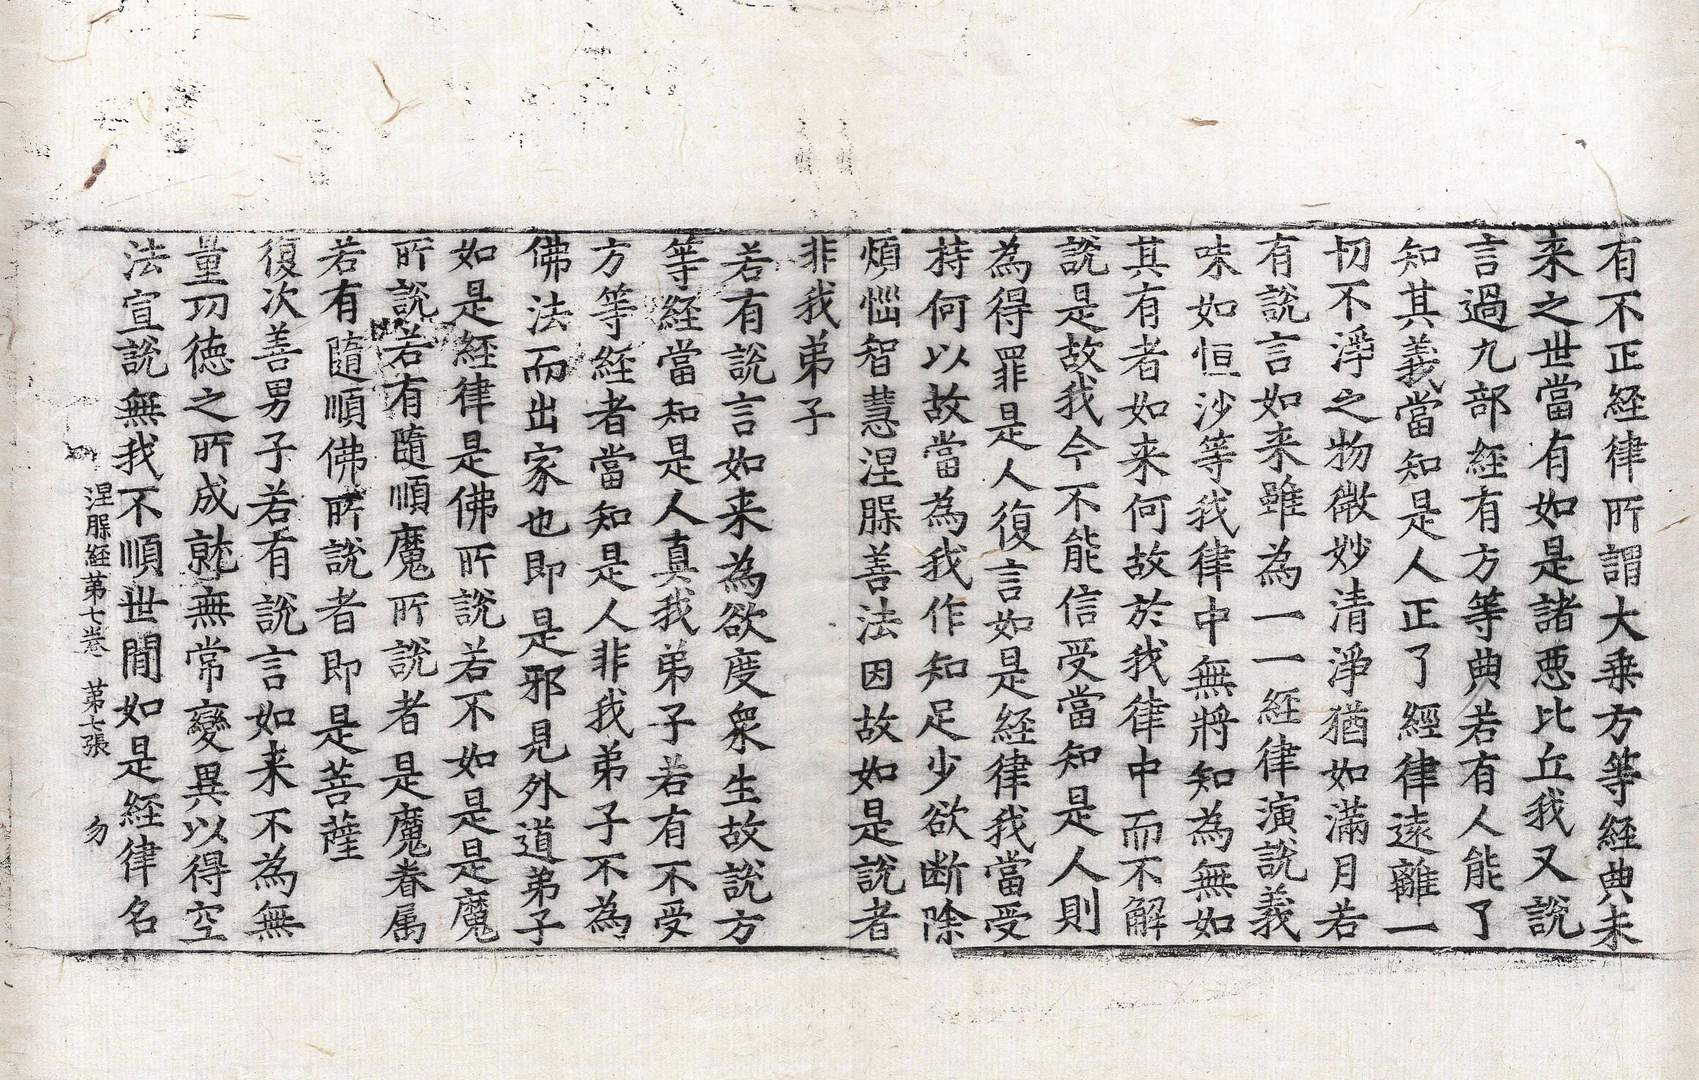 有不正経律所謂大乗方等経典未
来之世當有如是諸悪比丘我又說
言過九部経有方等典若有人能了
知其義當知是人正了經律逺離一
切不淨之物微妙清淨猶如滿月若
有說言如来雖為一一経律演說義
味如恒沙等我律中無將知為無如
其有者如来何故於我律中而不解
說是故我今不能信受當知是人則
為得罪是人復言如是経律我當受
持何以故當為我作知足少欲断除
煩惱智慧涅脲善法因故如是說者
非我弟子
若有說言如来為欲度衆生故說方
等経當知是人真我弟子若有不受
方等経者當知是人非我弟子不為
佛法而出家也即是邪見外道弟子
如是経律是佛所說若不如是是魔
所說若有隨順魔所說者是魔眷属
若有隨順佛所說者即是菩薩
復次善男子若有說言如来不為無
量功德之所成就無常變異以得空
法宣說無我不順世間如是経律名
涅脲経第七巻 第七張 勿